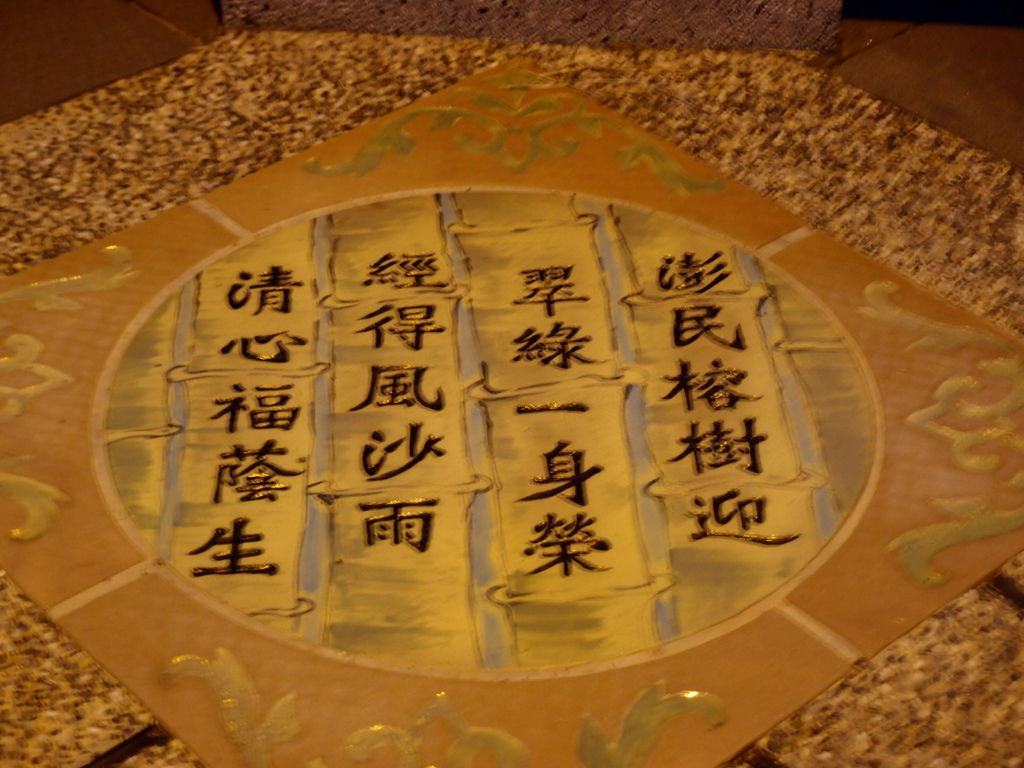 澎民榕樹迎
翠綠一身榮
經得風沙雨
清心福蔭生